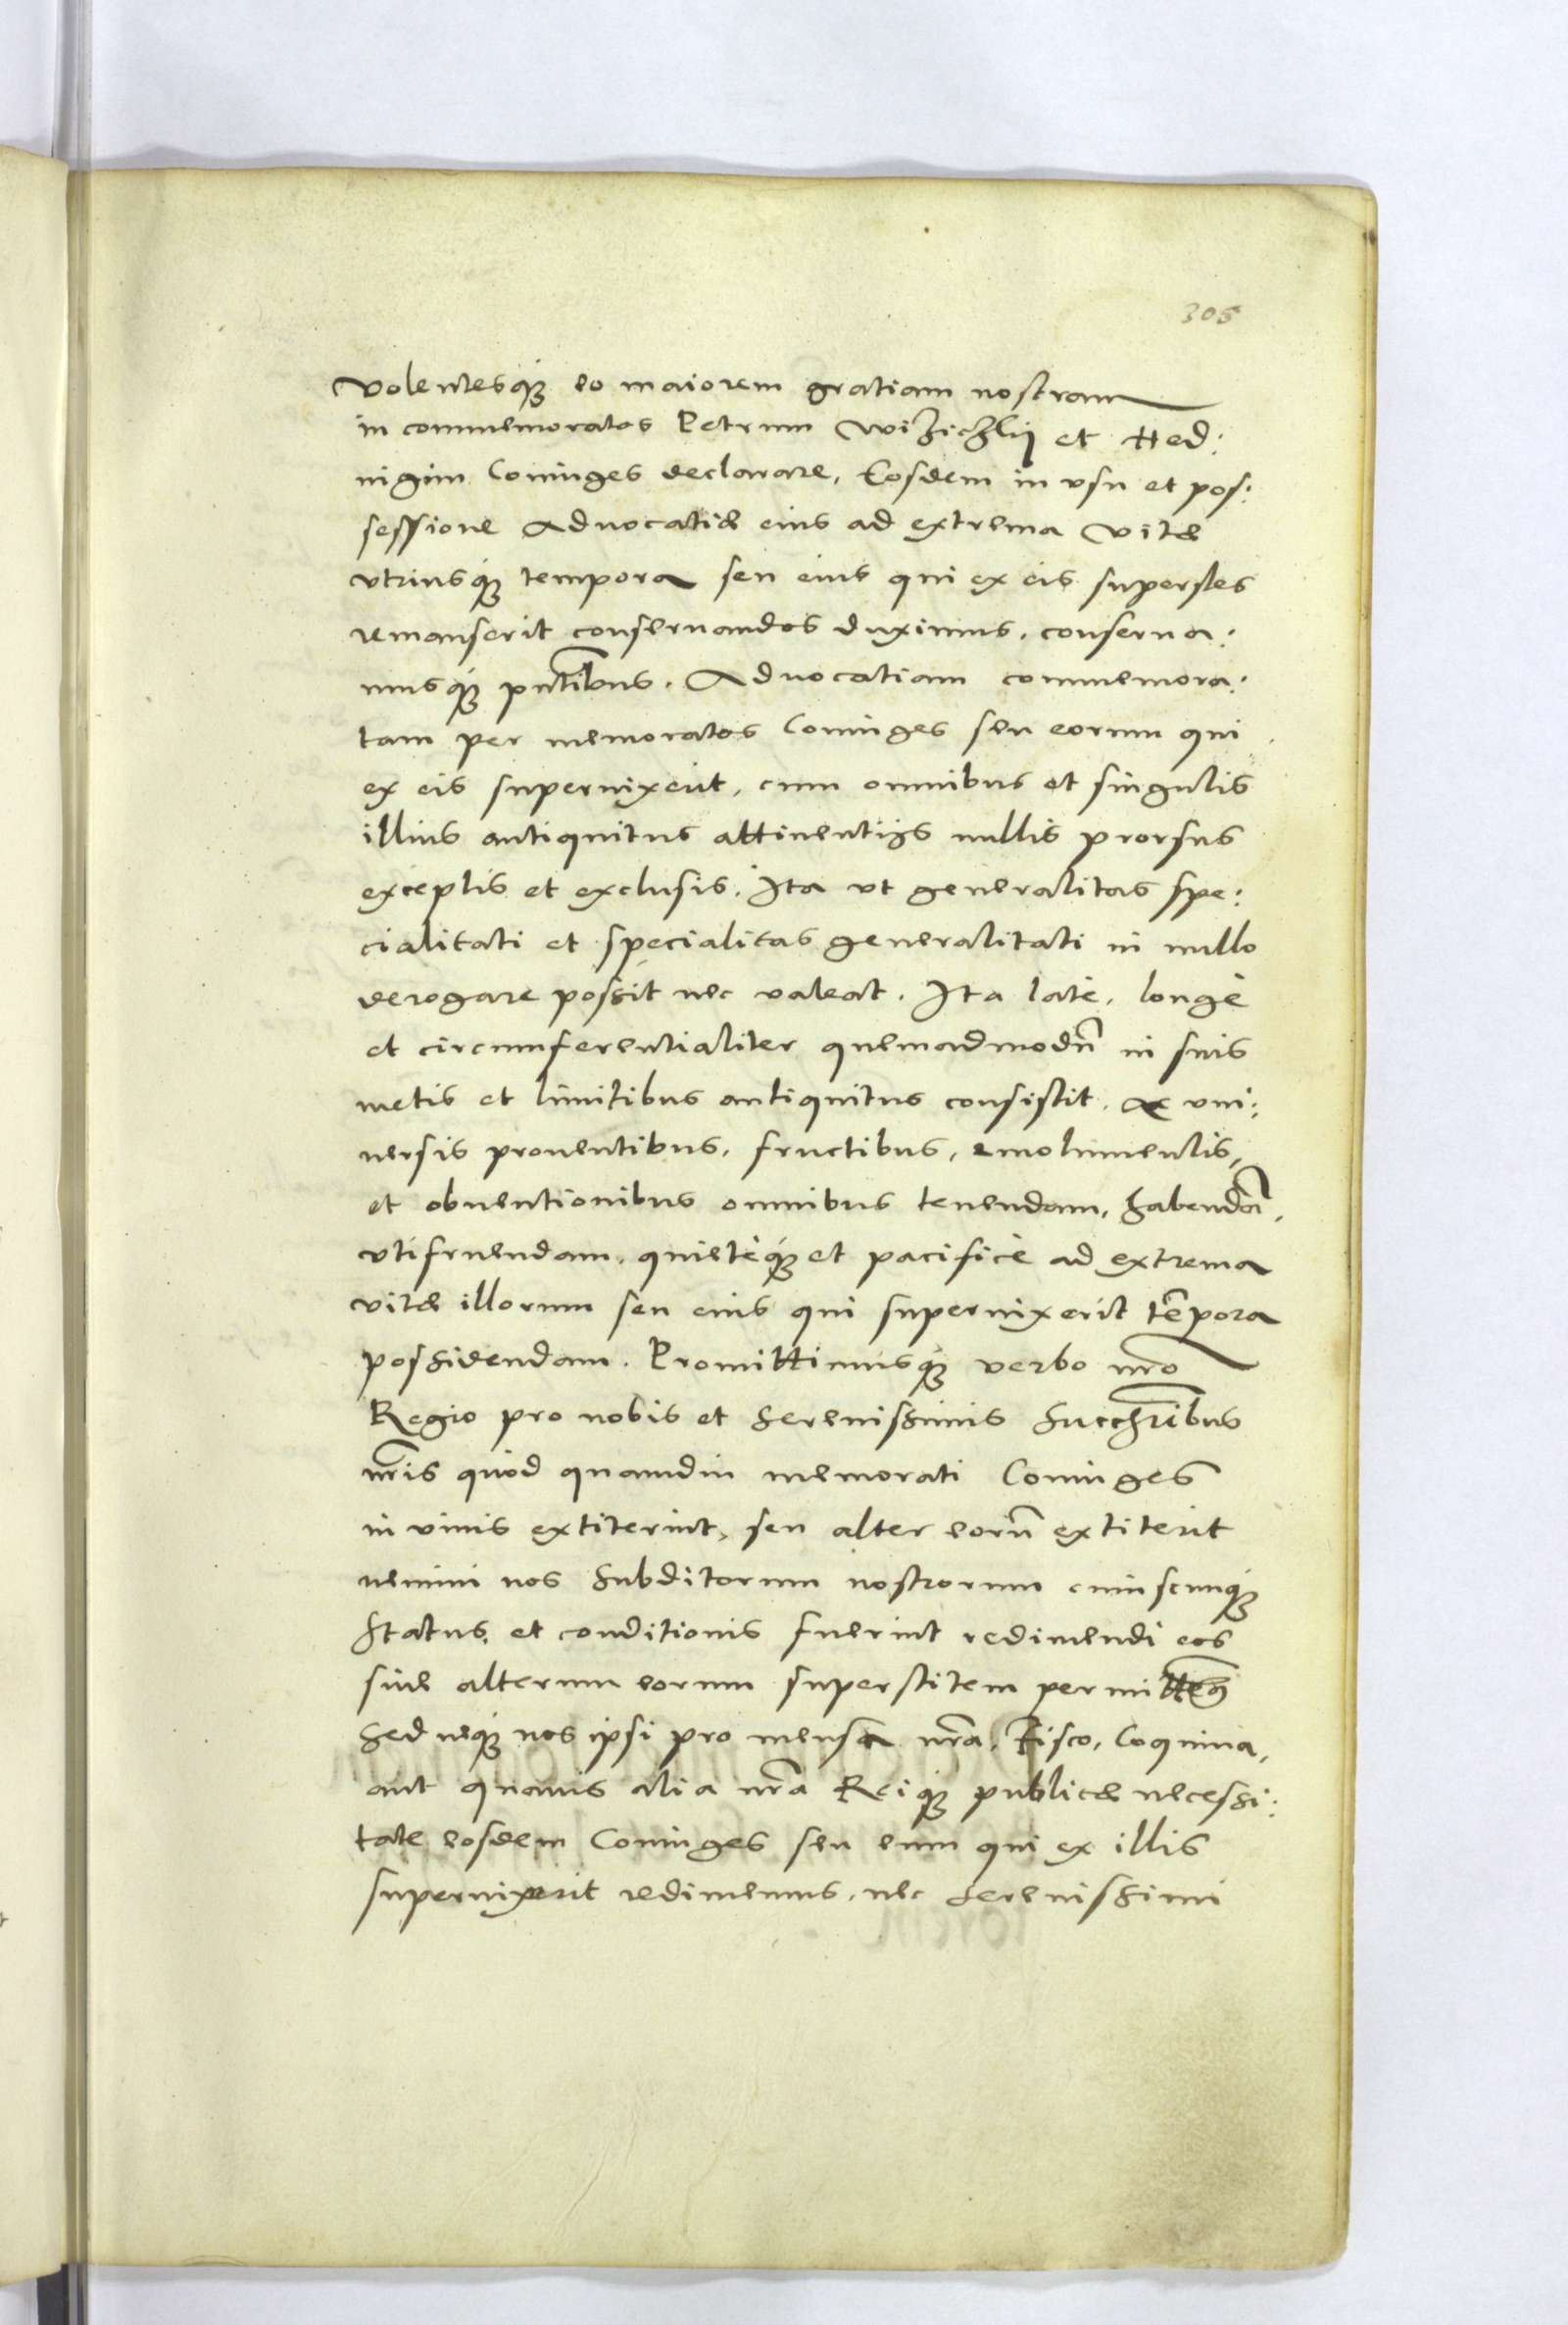 305
Volentesq́ue eo maiorem gratiam nostram
in commemoratos Petrum Wizichzlij et Hed:
uigim Coniuges declarare, Eosdem in vsu et pos:
sessione Aduocatiæ eius ad extrema vitæ
vtriusq́ue tempora seu eius qui ex eis superstes
remanserit conseruandos duximus. conserua:
musq́ue pñtibus. Aduocatiam commemora:
tam per memoratos Coniuges seu eorum qui
ex eis superuixerit, cum omnibus et singulis
illius antiquitus attinentijs nullis prorsus
exceptis et exclusis. Ita vt generalitas spe:
cialitati et specialitas generalitati in nullo
derogare possit nec valeat. Ita latè, longè
et circumferentialiter quemadmodũ in suis
metis et limitibus antiquitus consistit. Ac vni:
uersis prouentibus, fructibus, emolumentis,
et obuentionibus omnibus tenendam, habendã,
vtifruendam, quietèq́ue et pacificè ad extrema
vitæ illorum seu eius qui superuixerit tẽpora
possidendam. Promittimusq́ue verbo nr̃o
Regio pro nobis et Serenissimis Succr̃ibus
nr̃is quòd quamdiu memorati Coniuges
in viuis extiterint, seu alter eorũ extiterit
nemini nos Subditorum nostrorum cuiuscunq́ue
Status et conditionis fuerint redimendi eos
siue alterum eorum superstitem
Sed neq́ue nos ipsi pro mensa nr̃a, Fisco, Coquina,
aut quauis alia nr̃a Reiq́ue publicæ necessi:
tate eosdem Coniuges seu eum qui ex illis
superuixerit redimemus, nec Serenissimi